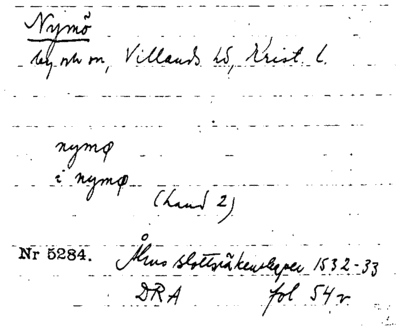 Nymö
by och sn, Villands hd, Krist. l.
nymø
i nymø
(hand 2)
Nr 5284. Åhus slottsräkenskaper 1532-33
DRA fol 54 r